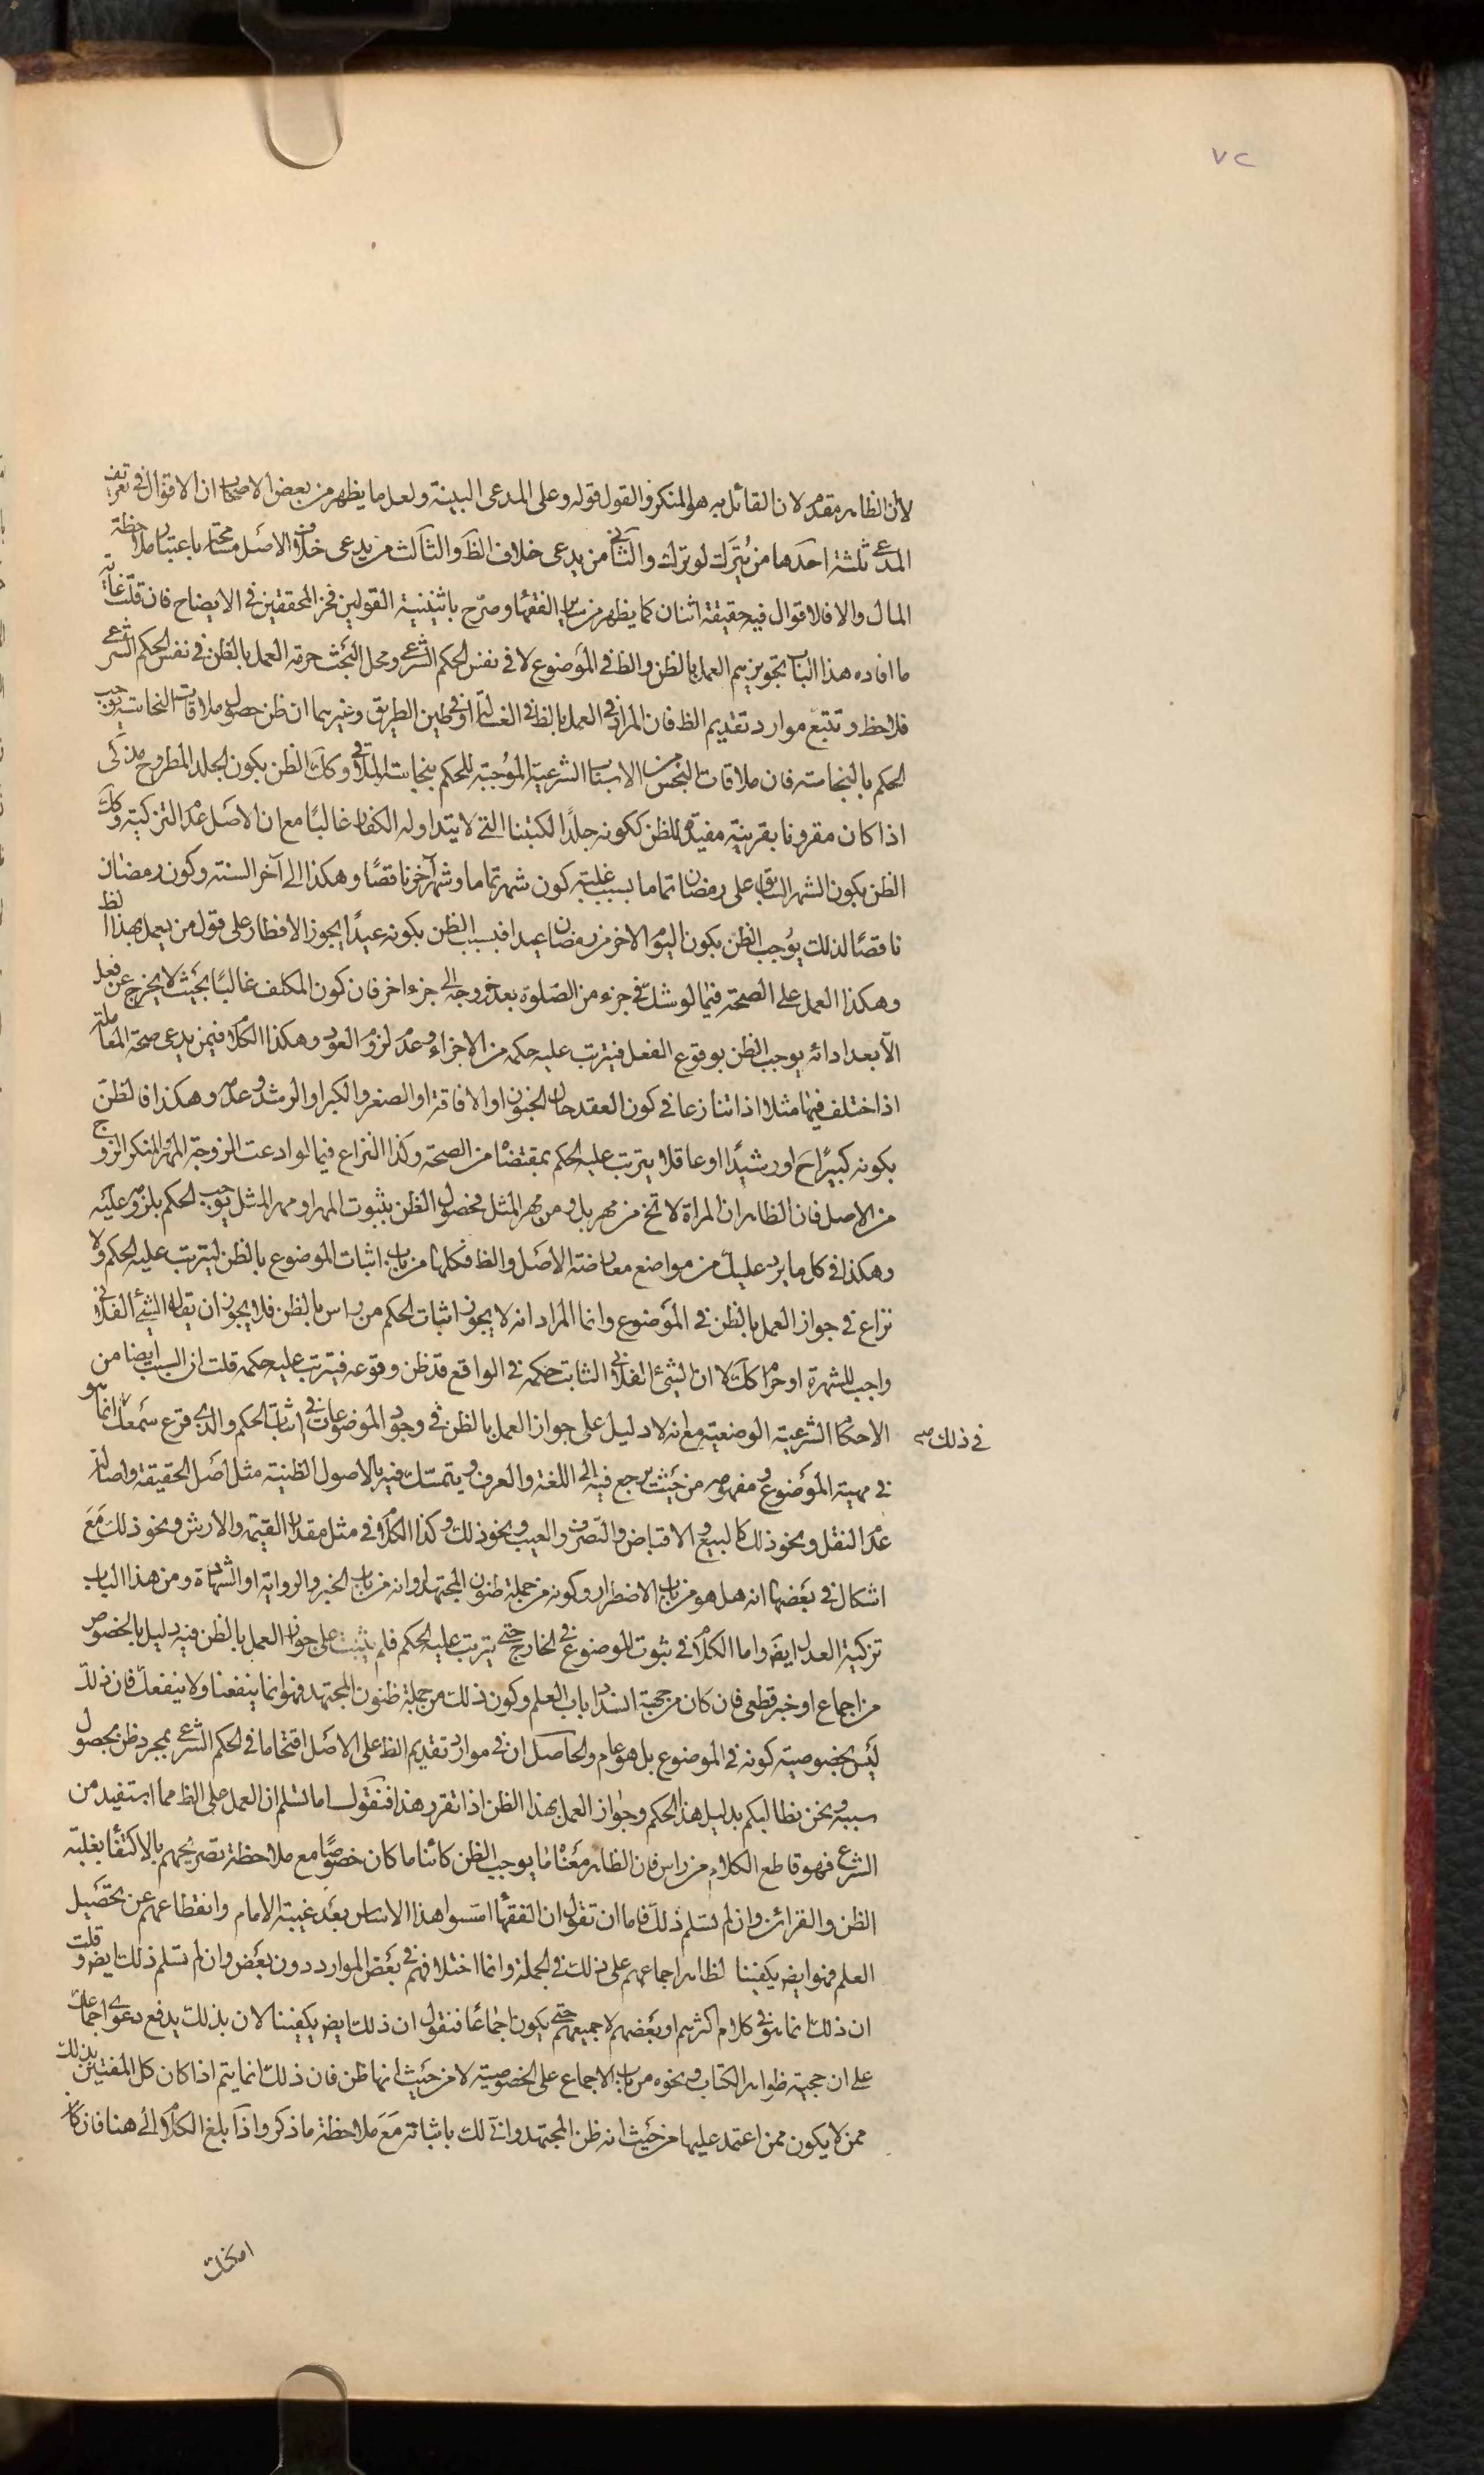 ٧٢
لأن الظاهر مقدم لان القائل به هو المنكر والقول قوله وعلى المدعى البينة ولعل ما يظهر من بعض الاصحاب ان الاقوال فى تعريف
المدعى ثلثة احدها من يُترك لو ترك والثانى من يدعى خلاف الظ والثالث من يدعى خلاف الاصل مسامحة باعتبار ملاحظة
المال والا فلا اقوال فيه حقيقة اثنان كما يظهر من سائر الفقهاء وصرح باثنينية القولين فخر المحققين فى الايضاح فان قلت غاية
ما افاده هذا الباب تجويزهم العمل بالظن والظ فى الموضوع لا فى نفس الحكم الشرعى ومحل البحث حرمة العمل بالظن فى نفس الحكم الشرعى
فلاحظ وتتبع موارد تقديم الظ فان المراد فى العمل بالظ فى الغسالة او فى طين الطريق وغيرهما ان ظن حصول ملاقات النجاسة يوجب
الحكم بالنجاسة فان ملاقات النجس من الاسباب الشرعية الموجبة للحكم بنجاسة الملاقى وكك الظن بكون الجلد المطروح مذكى
اذا كان مقرونا بقرينة مفيدة للظن ككونه جلدًا لكتبنا التى لا يتداوله الكفار غالبًا مع ان الاصل عدم التزكية وكك
الظن بكون الشهر السابق على رمضان تماما بسبب غلبة كون شهر تماما وشهر آخر ناقصًا وهكذا الى آخر السنة وكون رمضان
ناقصًا لذلك يوجب الظن بكون اليوم الاخر من رمضان عيدا فبسبب الظن بكونه عيدًا يجوز الافطار على قول من يعمل بهذا الظ
وهكذا العمل على الصحة فيما لو شك فى جزء من الصلوة بعد خروجه الى جزء اخر فان كون المكلف غالبًا بحيث لا يخرج عن فعل
الا بعد ادائه يوجب الظن بوقوع الفعل فيترتب عليه حكمه من الاجزاء وعدم لزوم العود وهكذا الكلام فيمن يدعى صحة المعاملة
اذا اختلف فيها مثلا اذا تنازعا فى كون العقد حال الجنون او الافاقة او الصغر والكبر او الرشد وعدمه وهكذا فالظن
بكونه كبيرًا ح او رشيدًا او عاقلا يترتب عليه الحكم بمقتضاه من الصحة وكذا النزاع فيما لو ادعت الزوجة المهر والمنكر الزوج
من الاصل فان الظاهر ان المراة لا تخ من مهر بل ومن مهر المثل فحصول الظن بثبوت المهر او مهر المثل يوجب الحكم بلزومه عليه
وهكذا فى كل ما يرد عليك من مواضع معارضة الاصل والظ فكلها من باب اثبات الموضوع بالظن ليترتب عليه الحكم ولا
نزاع فى جواز العمل بالظن فى الموضوع وانما المراد انه لا يجوز اثبات الحكم من راس بالظن فلا يجوز ان يقال الشئ الفلانى
واجب للشهرة او حرام كك لا ان الشئ الفلانى الثابت حكمه فى الواقع قد ظن وقوعه فيترتب عليه حكمه قلت ان السبب ايضا من
الاحكام الشرعية الوضعية مع انه لا دليل على جواز العمل بالظن فى وجود الموضوعات فى اثبات الحكم والذى قرع سمعك انما هو
فى ذلك صح
فى مهية الموضوع ومفهومه من حيث يرجع فيه الى اللغة والعرف ويتمسك فيه بالاصول الظنية مثل اصل الحقيقة واصالة
عدم النقل ونحو ذلك كالبيع والاقباض والتصرف والعيب ونحو ذلك وكذا الكلام فى مثل مقدار القيمة والارش ونحو ذلك مع
اشكال فى بعضها انه هل هو من باب الاضطرار وكونه من جملة ظنون المجتهد او انه من باب الخبر والرواية او الشهادة ومن هذا الباب
تزكية العدل ايض واما الكلام فى ثبوت الموضوع فى الخارج حتى يترتب عليه الحكم فلم يثبت على جواز العمل بالظن فيه دليل بالخصوص
من اجماع او خبر قطعى فان كان من جهة انسداد باب العلم وكون ذلك من جملة ظنون المجتهد فهو انما ينفعنا ولا ينفعك فان ذلك
ليس بخصوصية كونه فى الموضوع بل هو عام والحاصل ان فى موارد تقديم الظ على الاصل اقتحاما فى الحكم الشرعى بمجرد ظن بحصول
سببه ونحن نطالبكم بدليل هذا الحكم وجواز العمل بهذا الظن اذا تقرر هذا فنقول اما تسلم ان العمل على الظ مما استفيد من
الشرع فهو قاطع الكلام من راس فان الظاهر معناه ما يوجب الظن كائنا ما كان خصوصًا مع ملاحظة تصريحهم بالاكتفاء بغلبة
الظن والقرائن وان لم تسلم ذلك فاما ان تقول ان الفقهاء اسسوا هذا الاساس بعد غيبة الامام وانقطاعهم عن تحصيل
العلم فهو ايض يكفينا لظاهر اجماعهم على ذلك فى الجملة وانما اختلافهم فى بعض الموارد دون بعض وان لم تسلم ذلك ايض وقلت
ان ذلك انما هو فى كلام اكثرهم او بعضهم لا جميعهم حتى يكون اجماعًا فنقول ان ذلك ايض يكفينا لان بذلك يدفع دعوى اجماعك
على ان حجية ظواهر الكتاب ونحوه من باب الاجماع على الخصوصية لا من حيث انها ظن فان ذلك انما يتم اذا كان كل المفتين بذلك
ممن لا يكون ممن اعتمد عليها من حيث انه ظن المجتهد وانى لك باثباته مع ملاحظة ما ذكر واذا بلغ الكلام الى هنا فان كان
امكنك